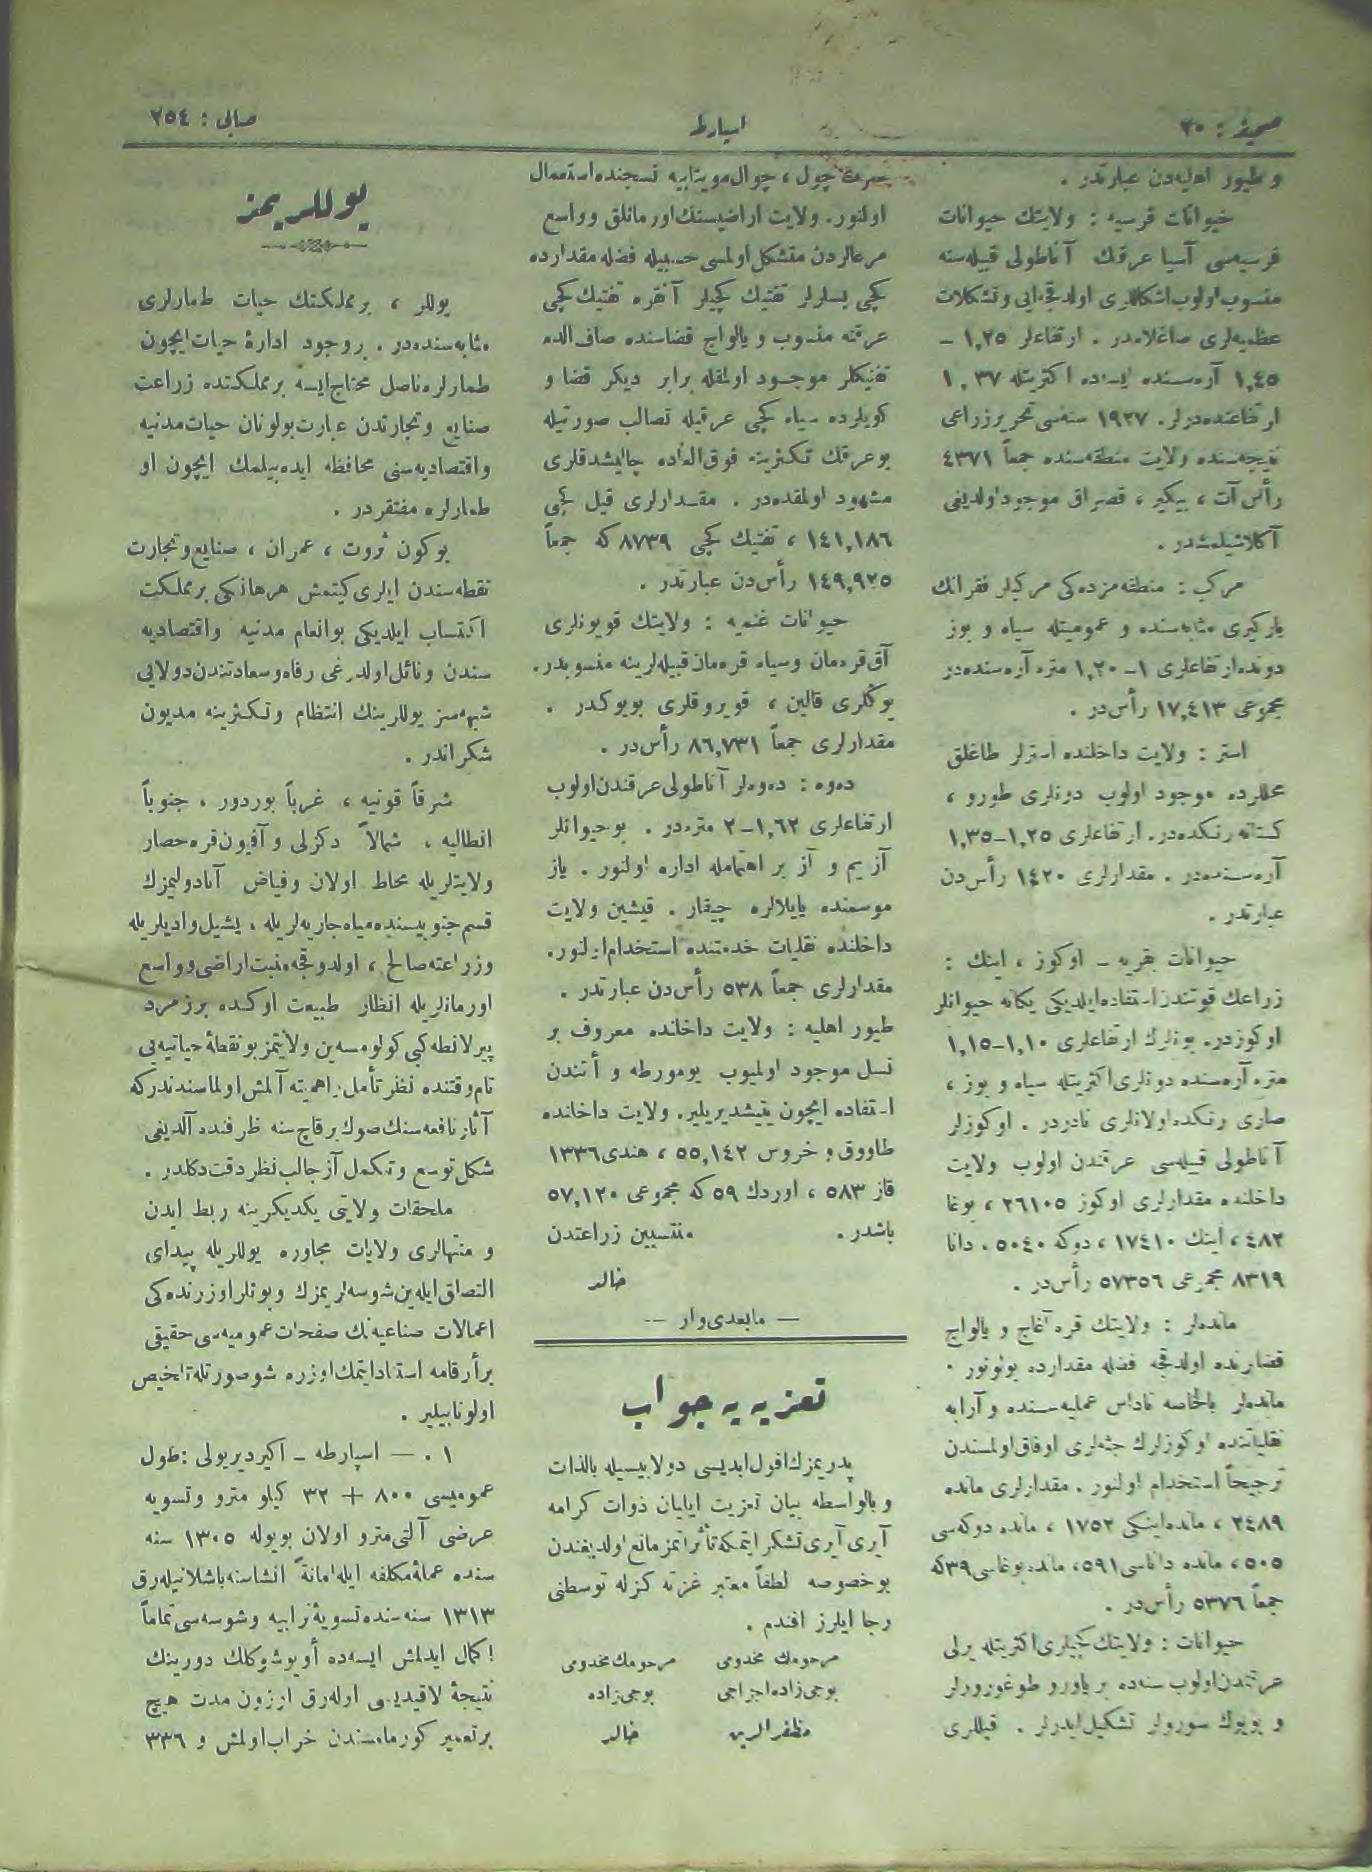 صحيفه : ٣٠
اسپارطه
صايى : ٢٥٤
و طيور اهليه‌دن عبارتدر .
حيوانات فرسيه : ولايتك حيوانات
فرسيه‌سى آسيا عرقنك آناطولى قبيله‌سنه
منسوب اولوب اشكاللرى اولدقجه ايى و تشكلات
عظميه‌لرى صاغلامدر . ارتفاعلر ١,٢٥ ـ
١,٤٥ آره‌سنده ايسه‌ده اكثريتله ١,٣٧
ارتفاعنده‌درلر. ١٩٢٧ سنه‌سى تحرير زراعى
نتيجه‌سنده ولايت منطقه‌سنده جمعاً ٤٣٧١
رأس آت ، بيكير ، قصراق موجود اولديغى
آكلاشيلمشدر .
مركب : منطقه‌مزده‌كى مركبلر فقرانك
باركيرى مثابه‌سنده و عموميتله سياه و بوز
دونده ارتفاعلرى ١ـ١,٢٠ متره آره‌سنده‌در
مجموعى ١٧,٤١٣ رأس‌در .
استر : ولايت داخلنده استرلر طاغلق
محللرده موجود اولوب دونلرى طورو ،
كستانه رنكده‌در. ارتفاعلرى ١,٢٥ـ١,٣٥
آره‌سنده‌در . مقدارلرى ١٤٢٠ رأس‌دن
عبارتدر .
حيوانات بقريه ـ اوكوز ، اينك :
زراعك قوتندن استفاده ايلديكى يكانه حيوانلر
اوكوزدر. بونلرك ارتفاعلرى ١,١٠ـ١,١٥
متره آره‌سنده دونلرى اكثريتله سياه و بوز ،
صارى رنكده اولانلرى نادردر . اوكوزلر
آناطولى قبيله‌سى عرقندن اولوب ولايت
داخلنده مقدارلرى اوكوز ٢٦١٠٥ ، بوغا
٤٨٢ ، اينك ١٧٤١٠ ، دوكه ٥٠٤٠ . دانا
٨٣١٩ مجموعى ٥٧٣٥٦ رأس‌در .
مانده‌لر : ولايتك قره آغاج و يالواج
قضارنده اولدقجه فضله مقدارده بولونور .
مانده‌لر بالخاصه ناداس عمليه‌سنده و آرابه
نقلياتنده اوكوزلرك جثه‌لرى اوفاق اولمسندن
ترجيحاً استخدام اولنور . مقدارلرى مانده
٢٤٨٩ ، مانده اينكى ١٧٥٢ ، مانده دوكه‌سى
٥٠٥ ، مانده داناسى ٥٩١ ، مانده بوغاسى ٣٩ كه
جمعاً ٥٣٧٦ رأس‌در .
حيوانات : ولايتك كچيلرى اكثريتله يرلى
عرقندن اولوب سنه‌ده بر ياورو طوغورورلر
و بويوك سورولر تشكيل ايدرلر . قيللرى
چول ، چوال موينابيه نسجنده استعمال
اولنور. ولايت اراضيسنك اورمانلق و واسع
مرعالردن متشكل اولمسى حسبيله فضله مقدارده
كچى بسلرلر تفتيك كچيلر آنقره تفتيك كچى
عرقنه منسوب و يالواج قضاسنده صاف الدم
تفتيكلر موجود اولمقله برابر ديكر قضا و
كويلرده سياه كچى عرقيله تصالب صورتيله
بو عرقك تكثيرينه فوق العاده چاليشدقلرى
مشهود اولمقده‌در . مقدارلرى قيل كچى
١٤١,١٨٦ ، تفتيك كچى ٨٧٣٩ كه جمعاً
١٤٩,٩٢٥ رأس‌دن عبارتدر .
حيوانات غنميه : ولايتك قويونلرى
آق قره‌مان و سياه قره‌مان قبيله‌لرينه منسوبدر.
يوكلرى قالين ، قويروقلرى بويوكدر .
مقدارلرى جمعاً ٨٦,٧٣١ رأس‌در .
ده‌وه : ده‌وه‌لر آناطولى عرقندن اولوب
ارتفاعلرى ١,٦٢ـ٢ متره‌در . بو حيوانلر
آز يم و آز بر اهتمامله اداره اولنور . ياز
موسمنده يايلالره چيقار . قيشين ولايت
داخلنده نقليات خدمتنده استخدام اولنور.
مقدارلرى جمعاً ٥٣٨ رأس‌دن عبارتدر .
طيور اهليه : ولايت داخلنده معروف بر
نسل موجود اولميوب يومورطه و أتندن
استفاده ايچون يتيشديريلير. ولايت داخلنده
طاووق و خروس ٥٥,١٤٢ ، هندى ١٣٣٦
قاز ٥٨٣ ، اوردك ٥٩ كه مجموعى ٥٧,١٢٠
باشدر . منتسبين زراعتدن
خالد
— مابعدى وار —
تعزيه‌يه جواب
پدريمزك افول ابديسى دولاييسيله بالذات
و بالواسطه بيان تعزيت ايليان ذوات كرامه
آيرى آيرى تشكر ايتمكه تأثراتمز مانع اولديغندن
بو خصوصه لطفاً معتبر غزته كزله توسطنى
رجا ايلرز افندم .
مرحومك مخدومى مرحومك مخدومى
بوجى زاده اجزاجى بوجى زاده
مظفر الدين خالد
يوللريمز
يوللر ، بر مملكتك حيات طمارلرى
مثابه‌سنده‌در . بر وجود ادارهٔ حيات ايچون
طمارلره ناصل محتاج ايسه بر مملكتده زراعت
صنايع و تجارتدن عبارت بولونان حيات مدنيه
و اقتصاديه‌سنى محافظه ايده‌بيلمك ايچون او
طمارلره مفتقردر .
بوكون ثروت ، عمران ، صنايع و تجارت
نقطه‌سندن ايلرى كيتمش هر هانكى بر مملكت
اكتساب ايلديكى بو انعام مدنيه و اقتصاديه
سندن و نائل اولدوغى رفاه و سعادتندن دولايى
شبهه‌سز يوللرينك انتظام و تكثرينه مديون
شكراندر .
شرقاً قونيه ، غرباً بوردور ، جنوباً
انطاليه ، شمالاً دكزلى و آفيون قره حصار
ولايتلريله محاط اولان و فياض آنادوليمزك
قسم جنوبيسنده مياه جاريه‌لريله ، يشيل واديلريله
و زراعته صالح ، اولدوقجه منبت اراضى و واسع
اورمانلريله انظار طبيعت اوكنده بر زمرد
پيرلانطه كبى كولومسه‌ين ولايتمز بو نقطهٔ حياتيه‌يى
تام وقتنده نظر تأمل و اهميته آلمش اولماسندندركه
آثار نافعه‌سنك صوك بر قاچ سنه ظرفنده آلديغى
شكل توسع و تكمل آز جالب نظر دقت دكلدر .
ملحقات ولايتى يكديكرينه ربط ايدن
و منتهالرى ولايات مجاوره يوللريله پيداى
التصاق ايله‌ين شوسه‌لريمزك و بونلر اوزرنده‌كى
اعمالات صناعيه‌نك صفحات عموميه‌سى حقيقى
بر أرقامه استناد ايتمك اوزره شو صورتله تلخيص
اولونابيلير .
١ . — اسپارطه ـ اكيردير يولى : طول
عموميسى ٨٠٠ + ٣٢ كيلو مترو و تسويه
عرضى آلتى مترو اولان بو يوله ١٣٠٥ سنه
سنده عملهٔ مكلفه ايله امانةً انشاسنه باشلانيله‌رق
١٣١٣ سنه‌سنده تسويهٔ ترابيه و شوسه‌سى تماماً
اكمال ايدلمش ايسه‌ده أويوشوكلك دورينك
نتيجهٔ لاقيديسى اوله‌رق اوزون مدت هيچ
بر تعمير كورمه‌مسندن خراب اولمش و ٣٣٦